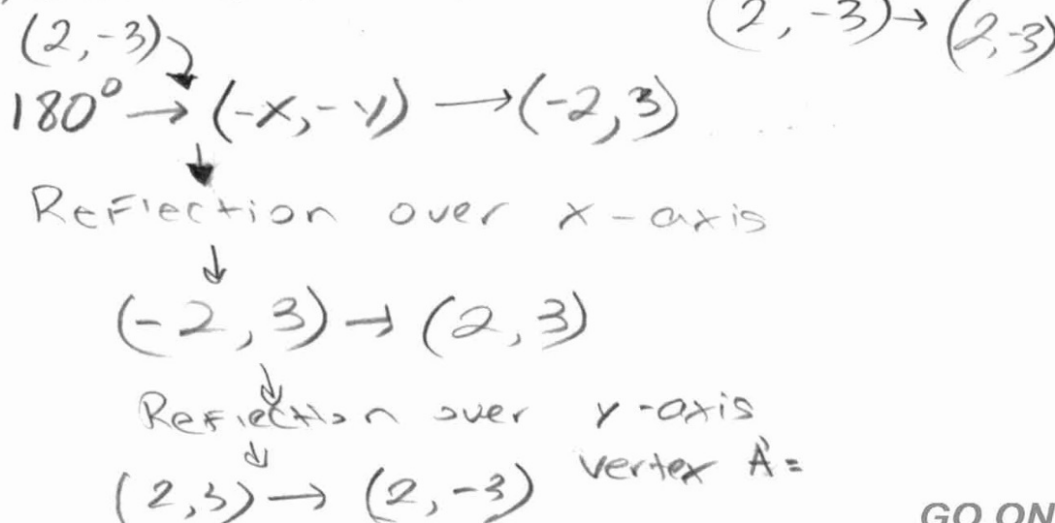 (2,-3)
(2,-3)→(2,-3)
180°→(-x,-y)→(-2,3)
Reflection over x-axis
(-2,3)→(2,3)
Reflection over y-axis
(2,3)→(2,-3) vertex A' =
GO ON